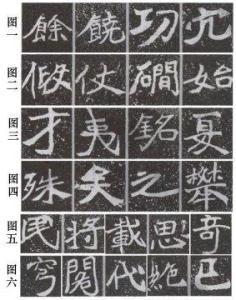 图一 餘 饒 功 宂
图二 假 仗 磵 始
图三 才 夷 銘 夏
图四 殊 矣 之 攀
图五 民 將 載 思 奇
图六 穹 閣 代 絶 已